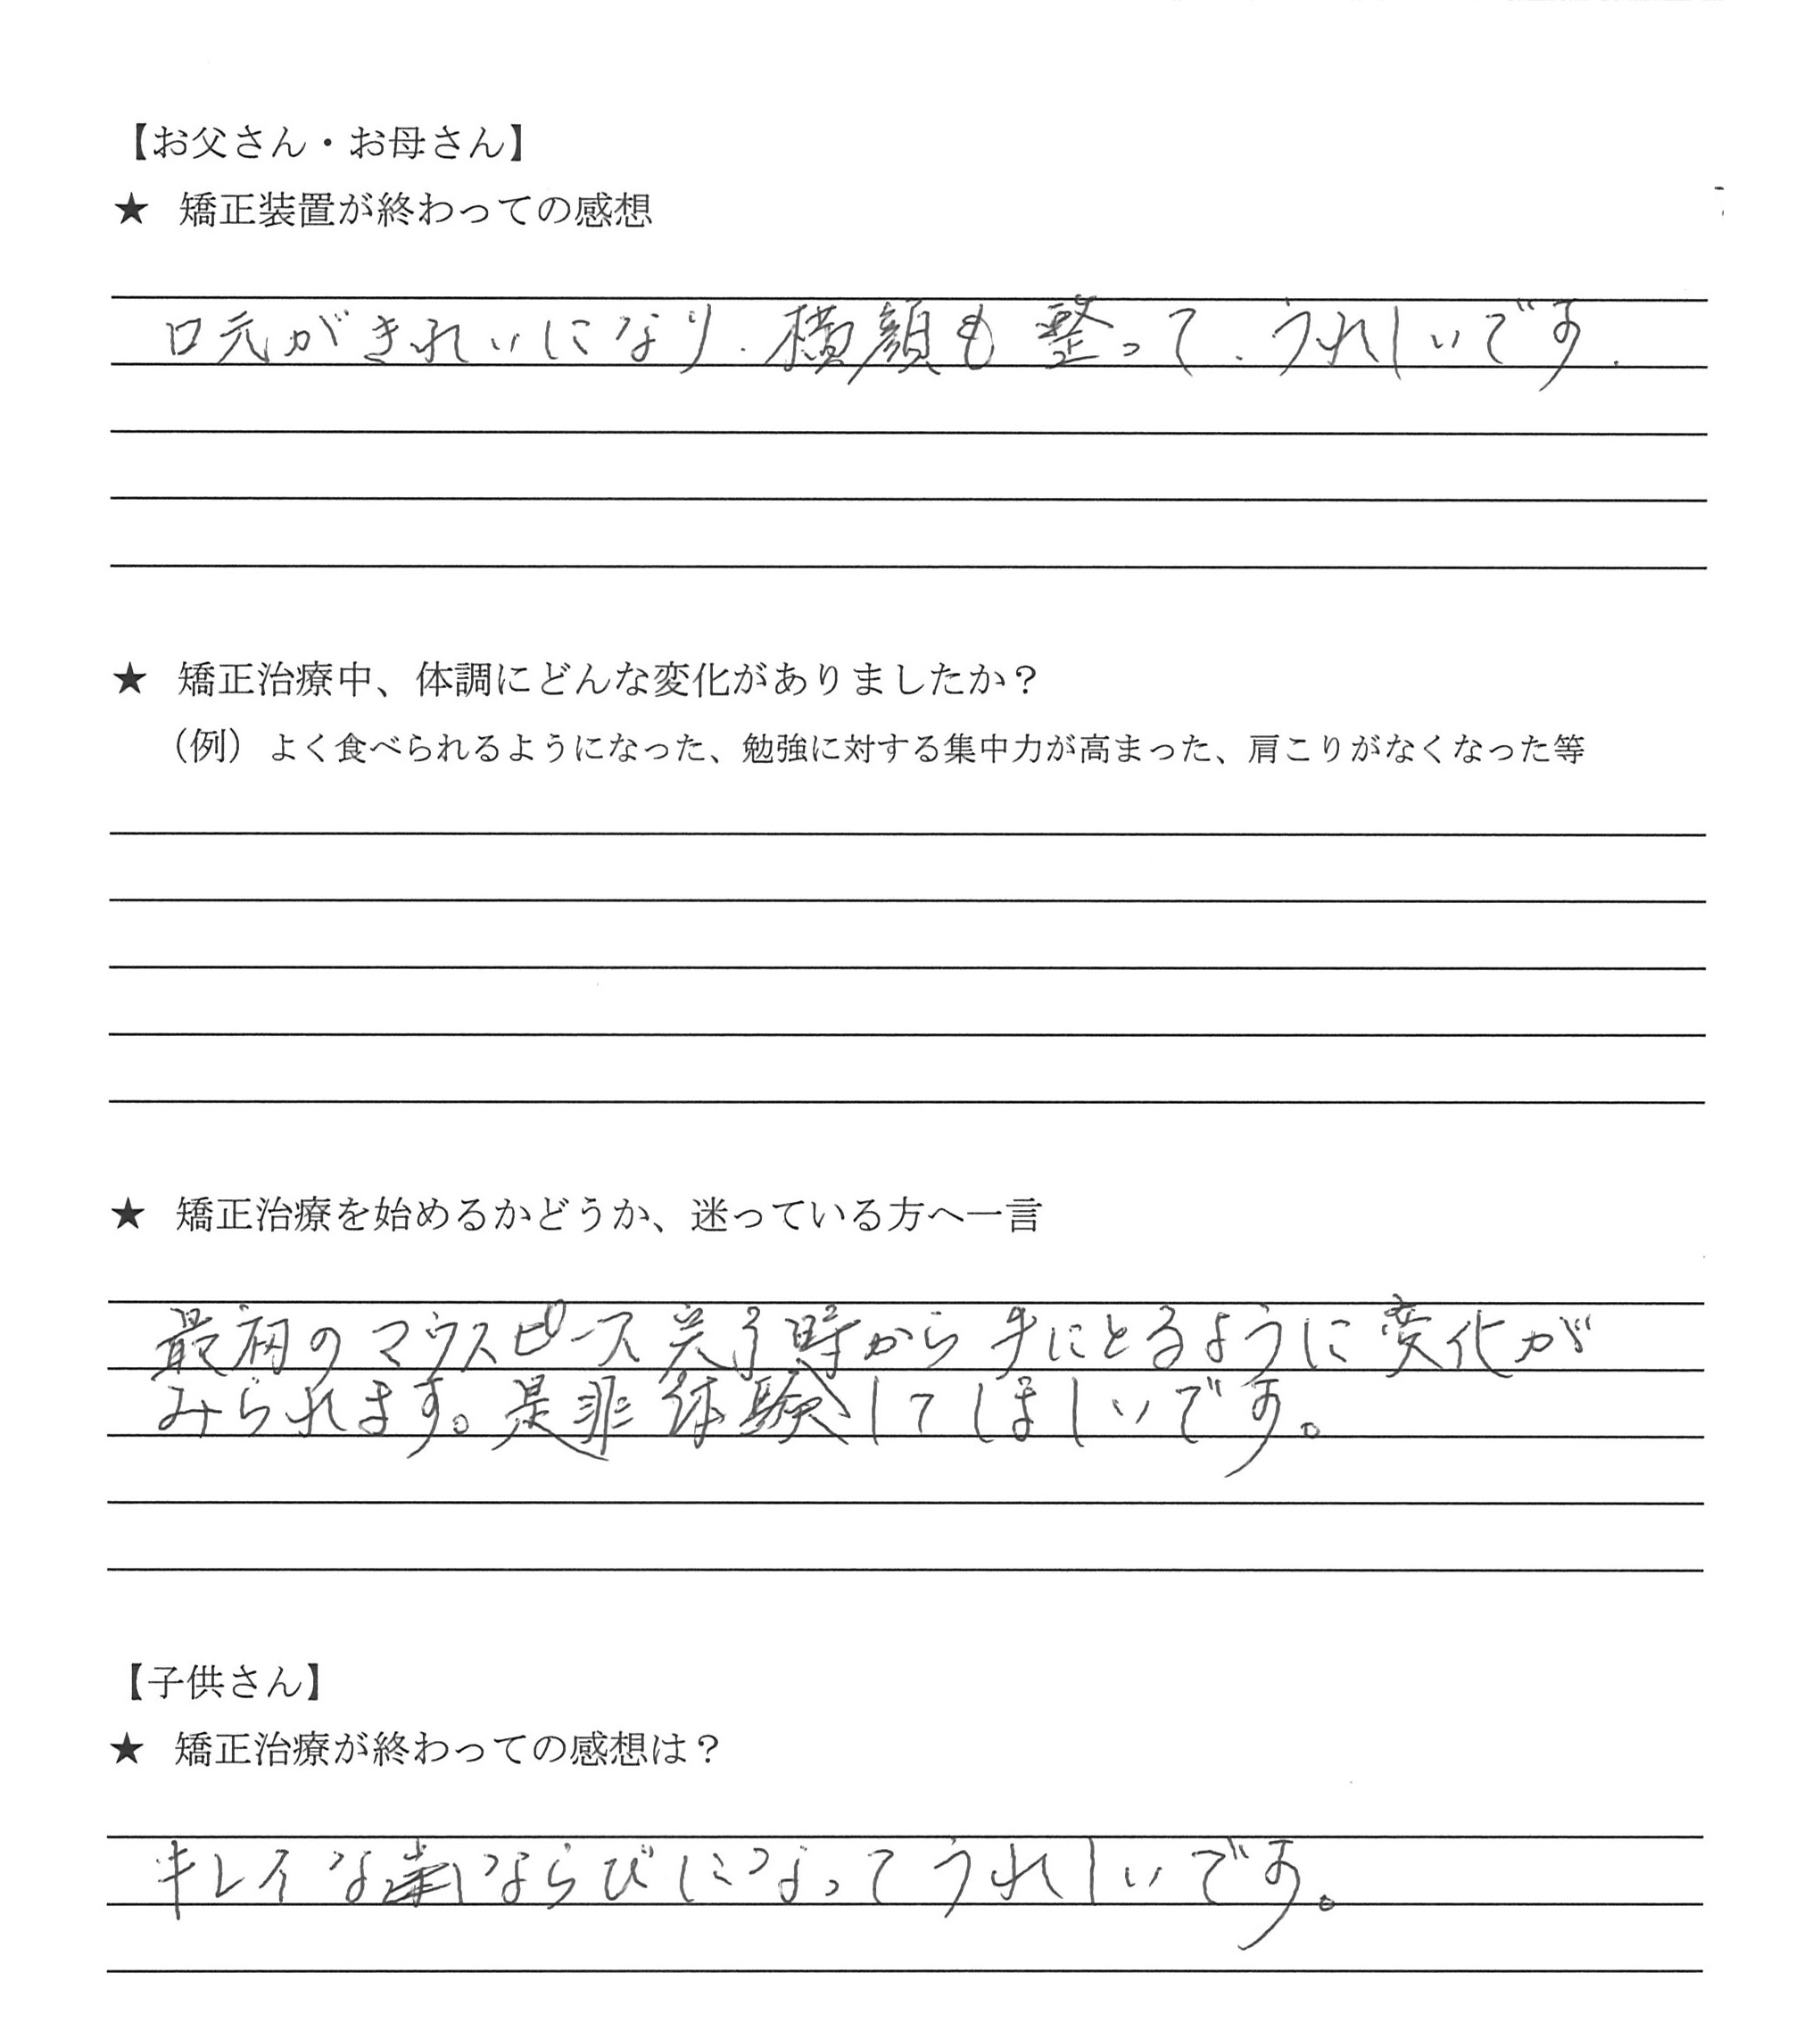 【お父さん・お母さん】
★ 矯正装置が終わっての感想
口元がきれいになり、横顔も整って、うれしいです.
★ 矯正治療中、体調にどんな変化がありましたか？
（例）よく食べられるようになった、勉強に対する集中力が高まった、肩こりがなくなった等
★ 矯正治療を始めるかどうか、迷っている方へ一言
最初のマウスピース完了時から手にとるように変化が
みられます。是非体験してほしいです。
【子供さん】
★ 矯正治療が終わっての感想は？
キレイな歯ならびになってうれしいです。